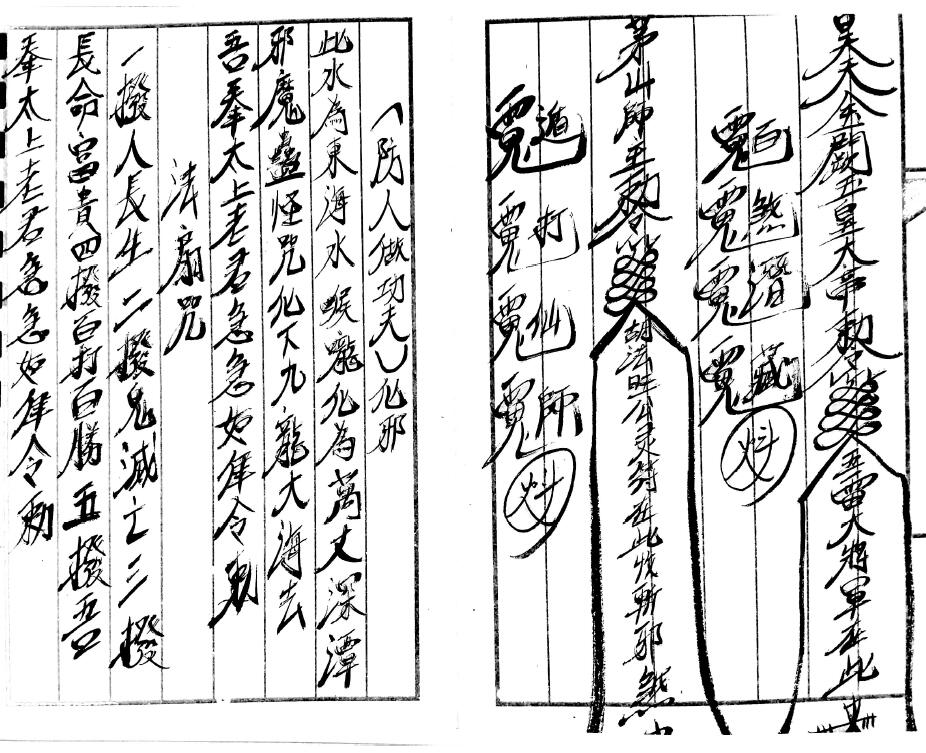 昊天金闕玉皇大帝勅令 五雷大將軍在此
百 煞 潛 藏
茅山師主勅令 胡法旺公灵符在此伐斬邪煞
遁 打 仙 師
（防人做功夫）化邪
此水為東海水喉嚨化為萬丈深潭
邪魔蠱怪咒化下九龍大海去
吾奉太上老君急急如律令勅
法扇咒
一撥人長生二撥鬼滅亡三撥
長命富貴四撥百打百勝五撥吾
奉太上老君急急如律令勅